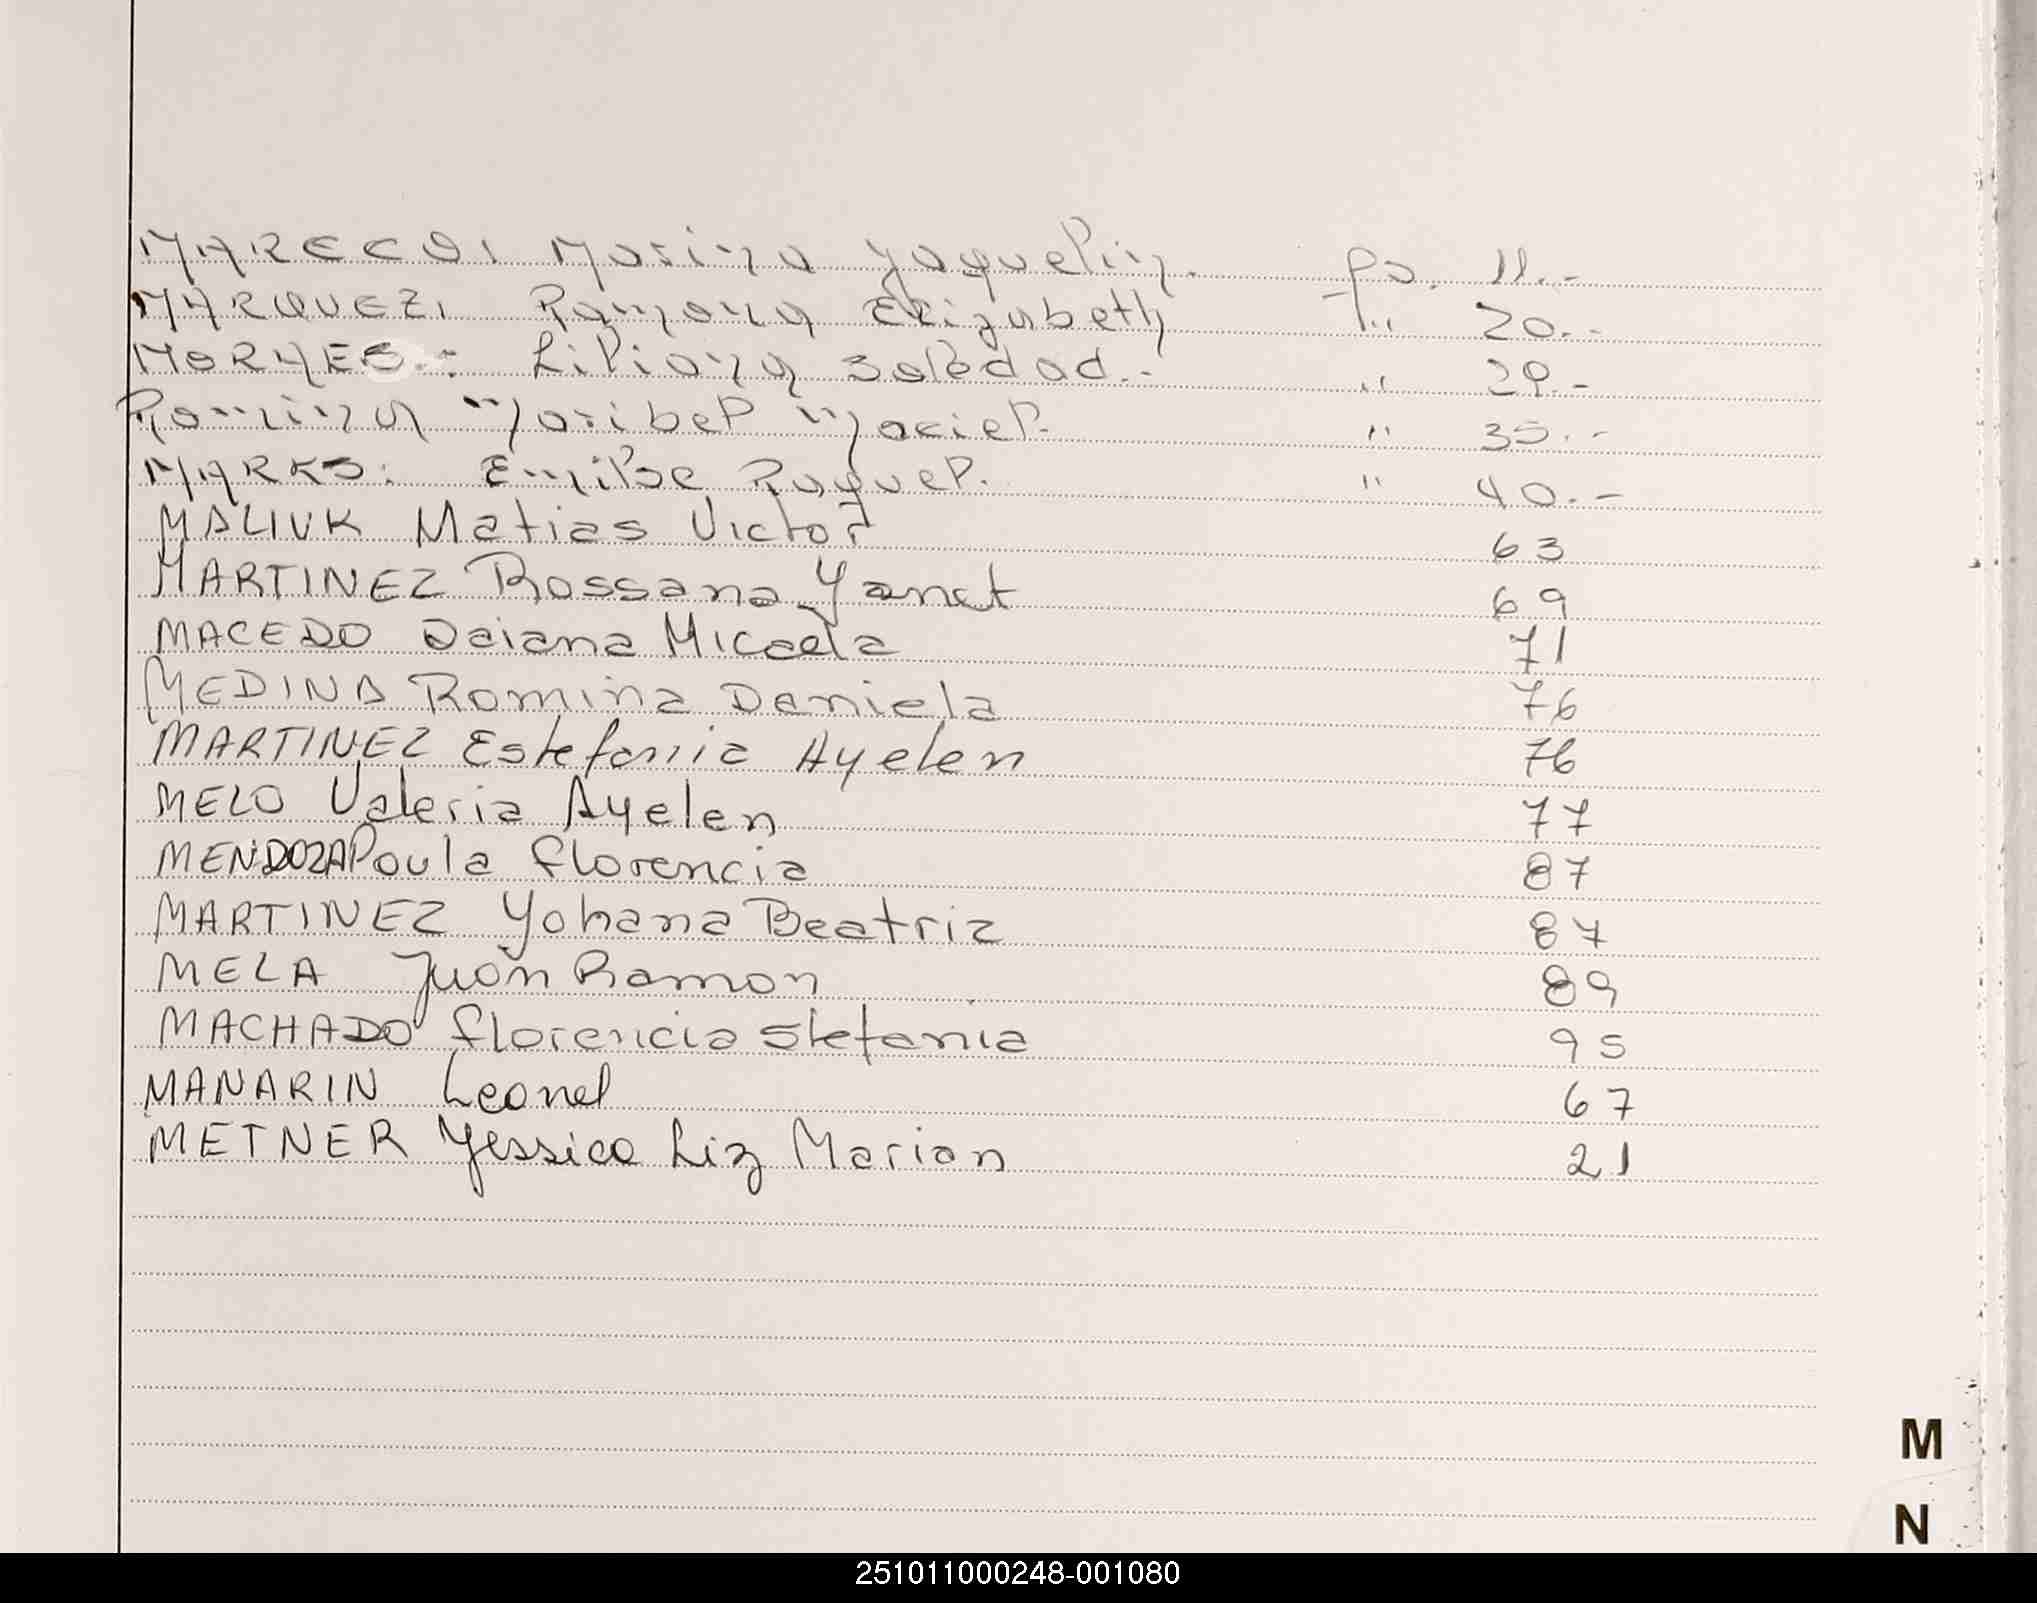 MARECO, Marina Yaquelin. fs. 11.-
MARQUEZ, Ramona Elizabeth " 20.-
MORYES.: Liliana Soledad.- " 29.-
Romina Maribel Maciel. " 35.-
MARKS: Emilse Raquel. " 40.-
MALIUK Matias Victor 63
MARTINEZ Rossana Yanet 69
MACEDO Daiana Micaela 71
MEDINA Romina Daniela 76
MARTINEZ Estefania Ayelen 76
MELO Valeria Ayelen 77
MENDOZA Paula florencia 87
MARTINEZ Yohana Beatriz 87
MELA Juan Ramon 89
MACHADO florencia Stefania 95
MANARIN Leonel 67
METNER Yessica Liz Marian 21
M
N
251011000248-001080